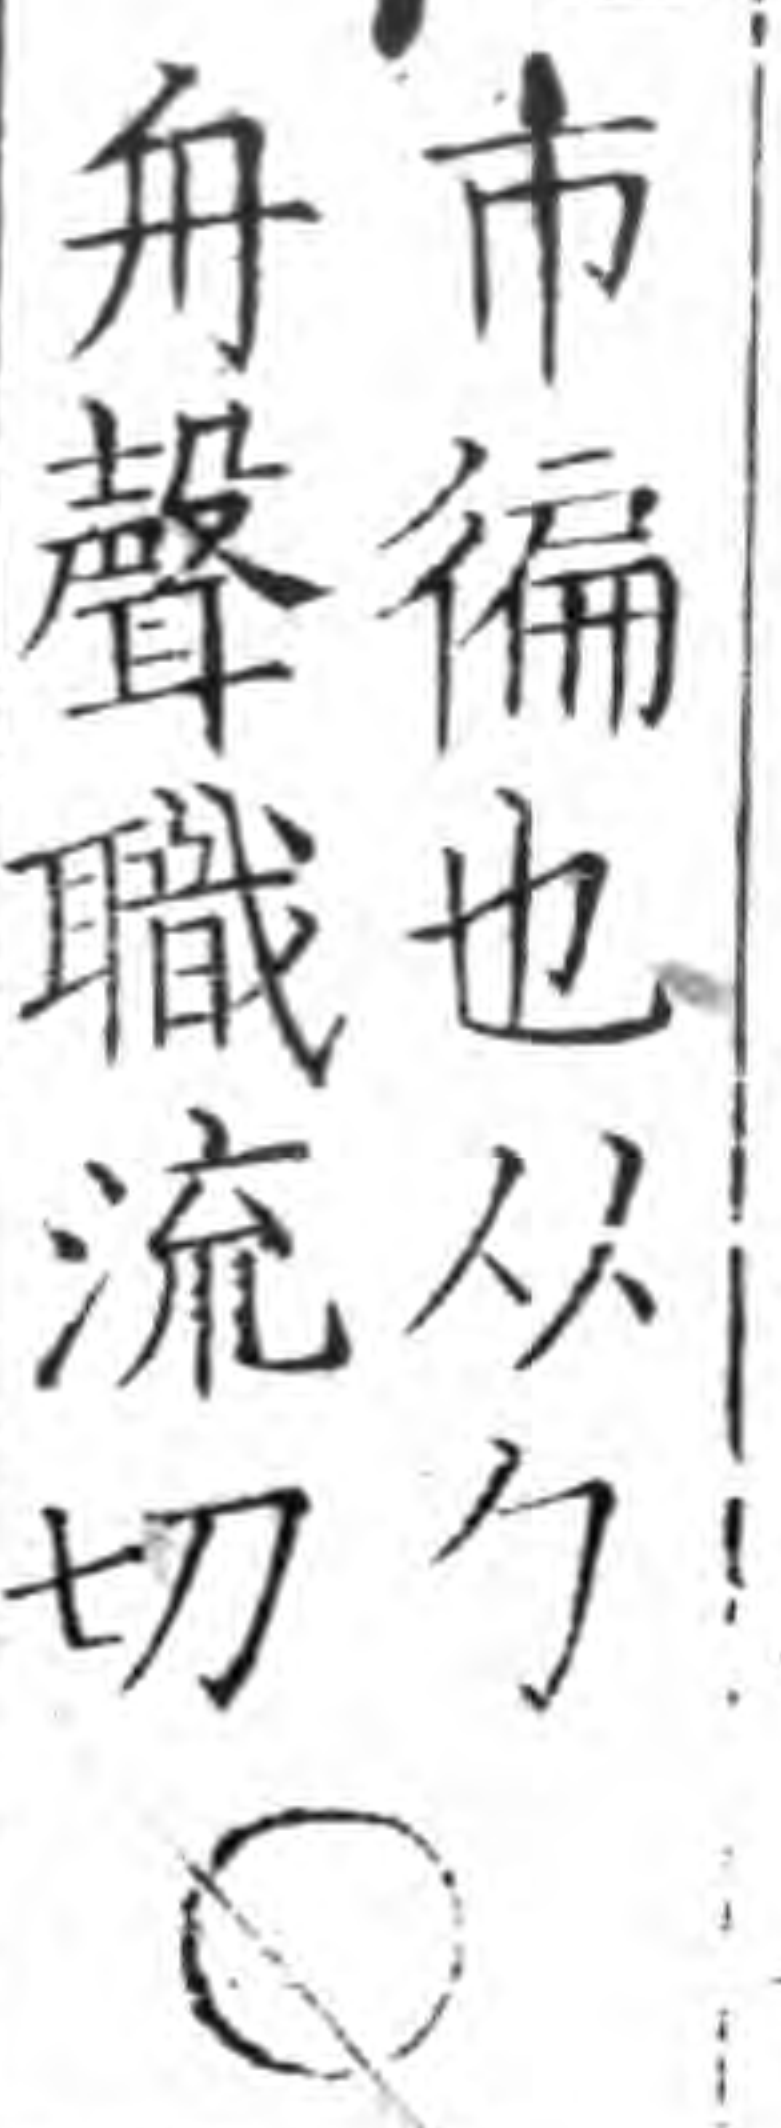 市徧也从勹
舟聲職流切